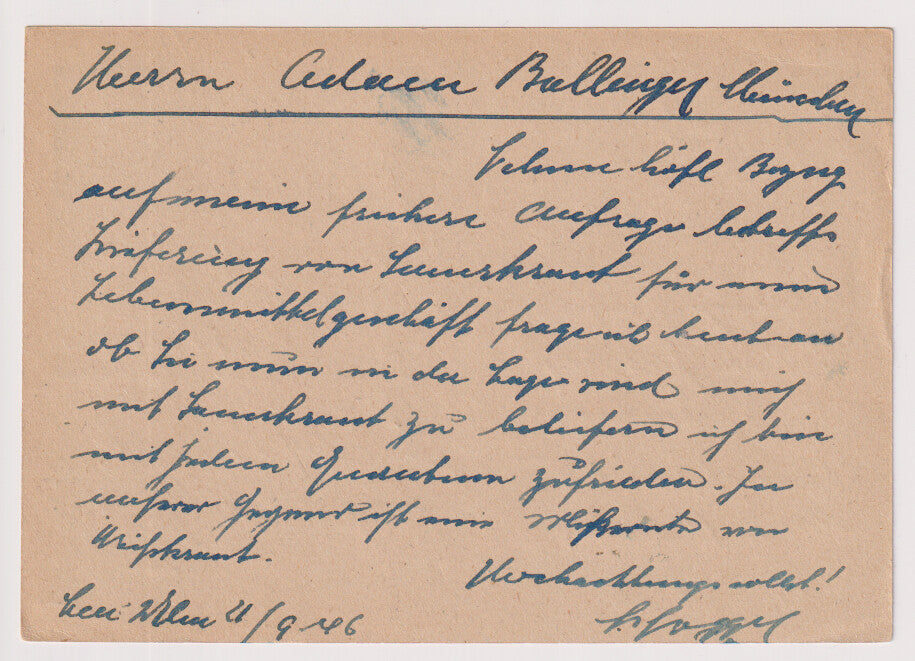 Herrn Adam Ballinger München
Nehme höfl Bezug
auf meine frühere Anfrage betreffs
Lieferung von Sauerkraut für mein
Lebensmittelgeschäft frage ich heute an
ob Sie nun in der Lage sind mich
mit Sauerkraut zu beliefern ich bin
mit jedem Quantum zufrieden. In
unserer Gegend ist eine Mißernte von
Weißkraut.
Hochachtungsvollst!
Ulm 21/9 46